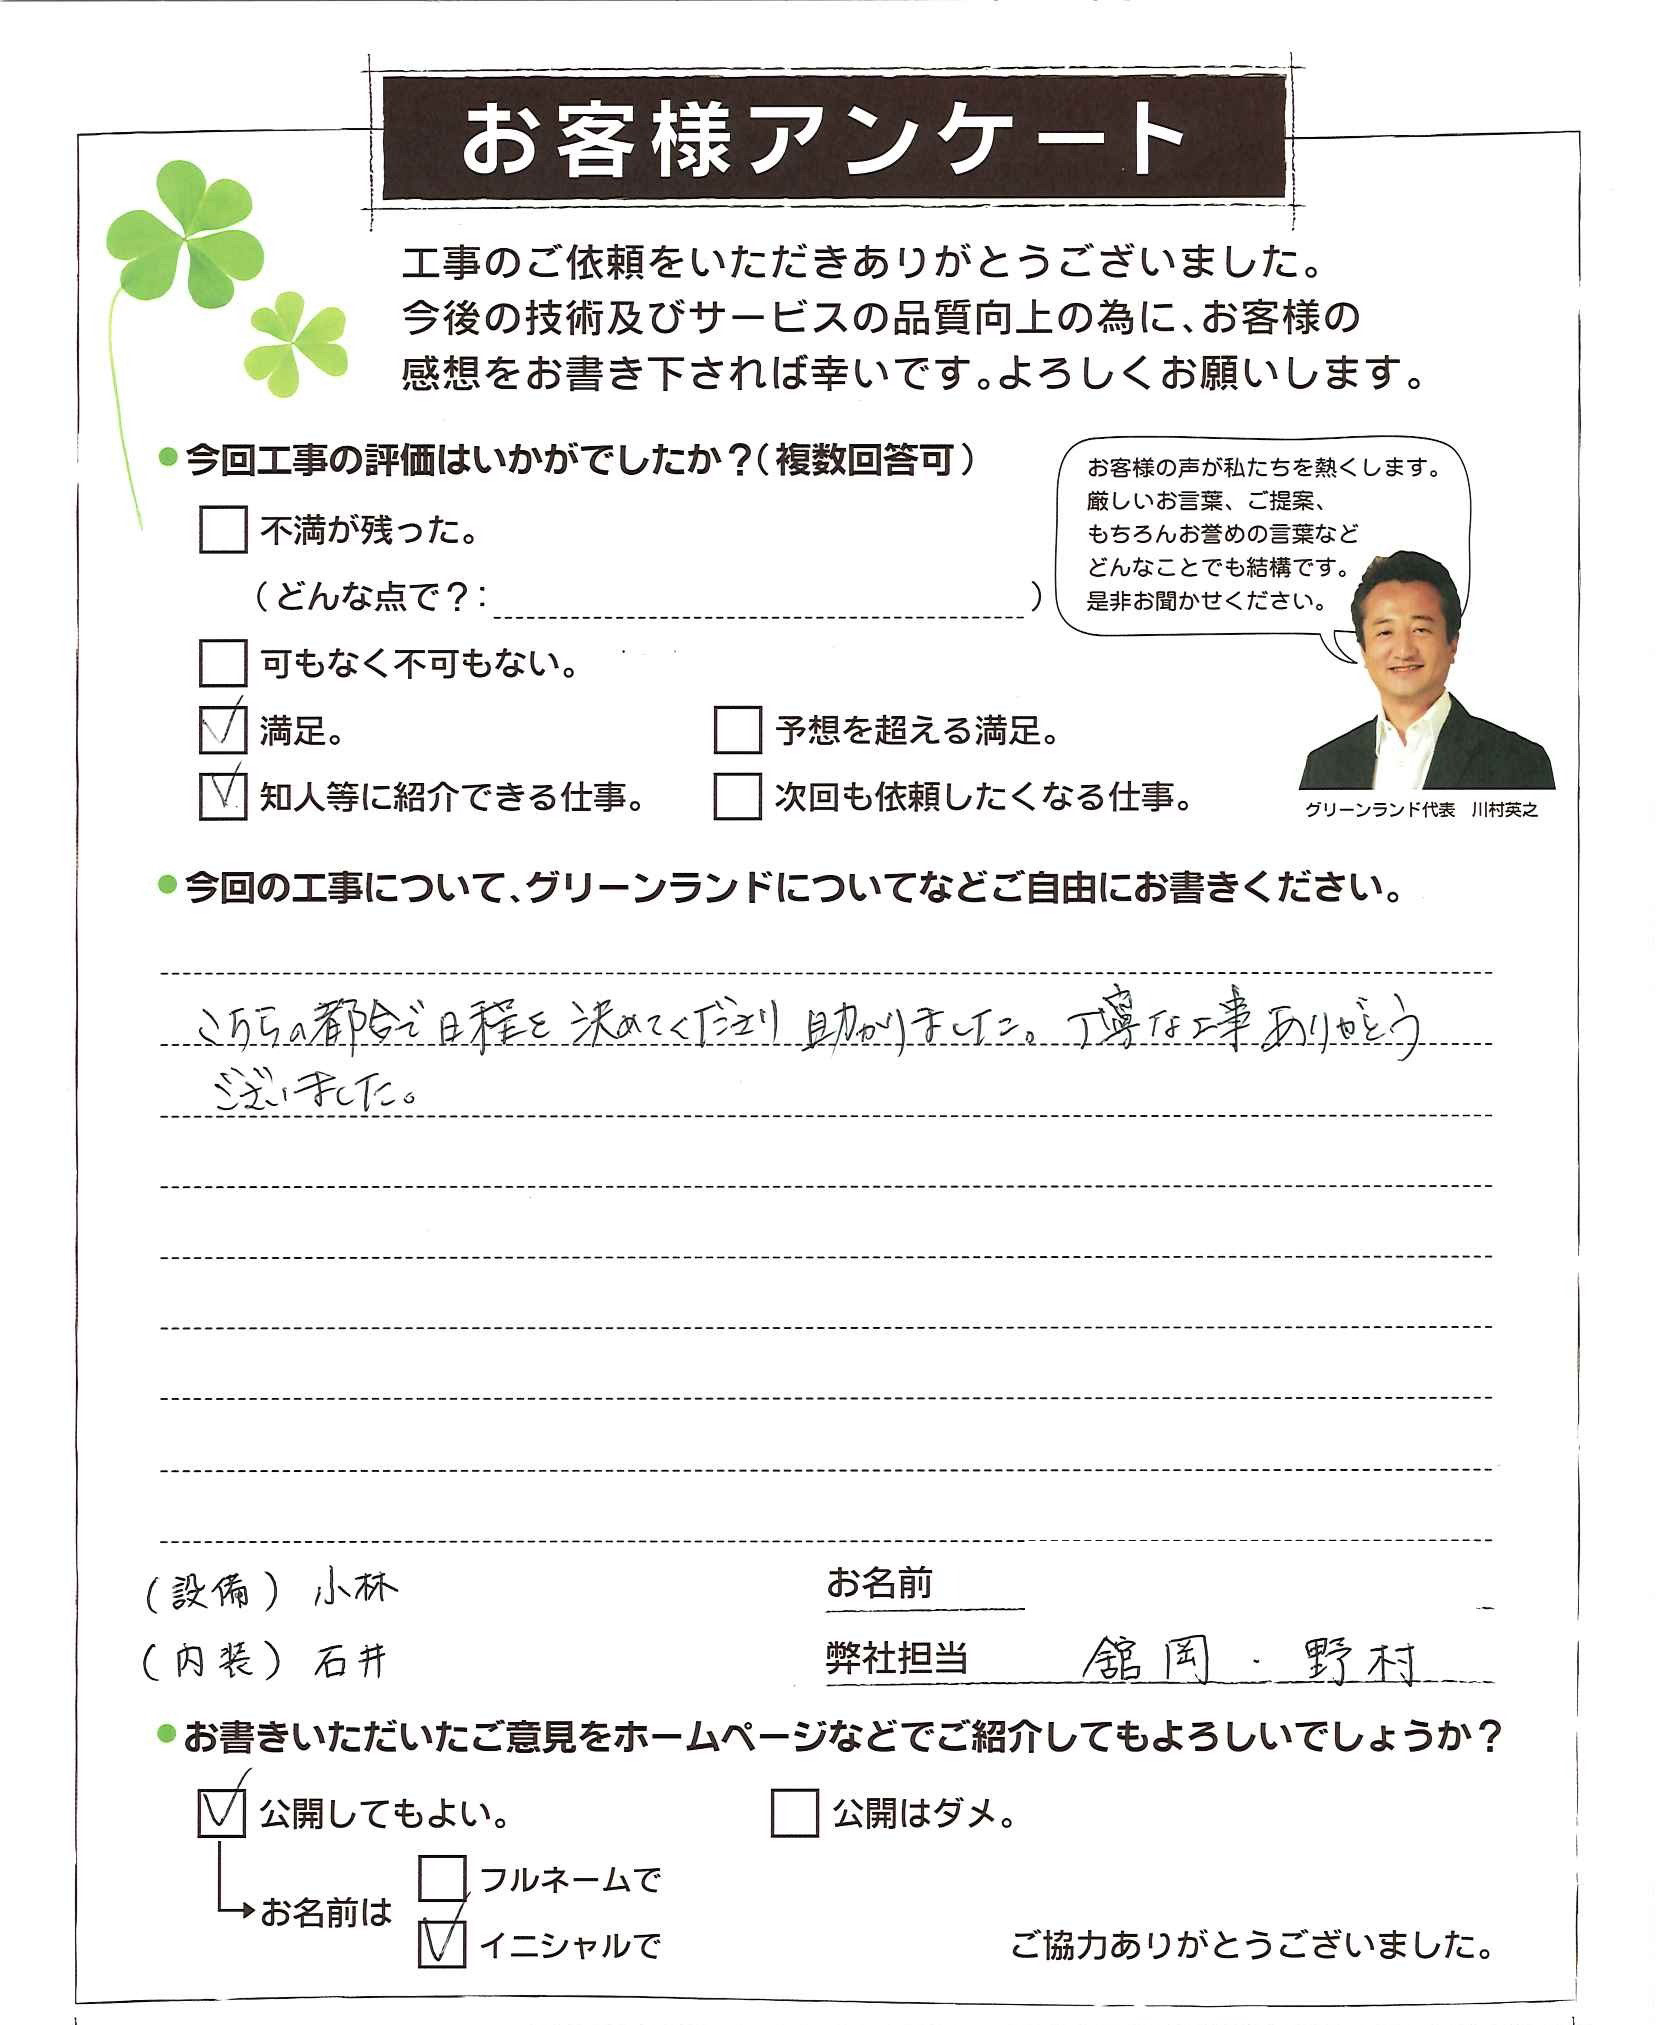 お客様アンケート
工事のご依頼をいただきありがとうございました。
今後の技術及びサービスの品質向上の為に、お客様の
感想をお書き下されば幸いです。よろしくお願いします。
●今回工事の評価はいかがでしたか？（複数回答可）
不満が残った。
（どんな点で？：　）
可もなく不可もない。
満足。
予想を超える満足。
知人等に紹介できる仕事。
次回も依頼したくなる仕事。
お客様の声が私たちを熱くします。
厳しいお言葉、ご提案、
もちろんお誉めの言葉など
どんなことでも結構です。
是非お聞かせください。
グリーンランド代表　川村英之
●今回の工事について、グリーンランドについてなどご自由にお書きください。
こちらの都合で日程を決めてくださり助かりました。丁寧な工事ありがとう
ございました。
（設備）小林
（内装）石井
お名前
弊社担当　舘岡・野村
●お書きいただいたご意見をホームページなどでご紹介してもよろしいでしょうか？
公開してもよい。
公開はダメ。
お名前は
フルネームで
イニシャルで
ご協力ありがとうございました。